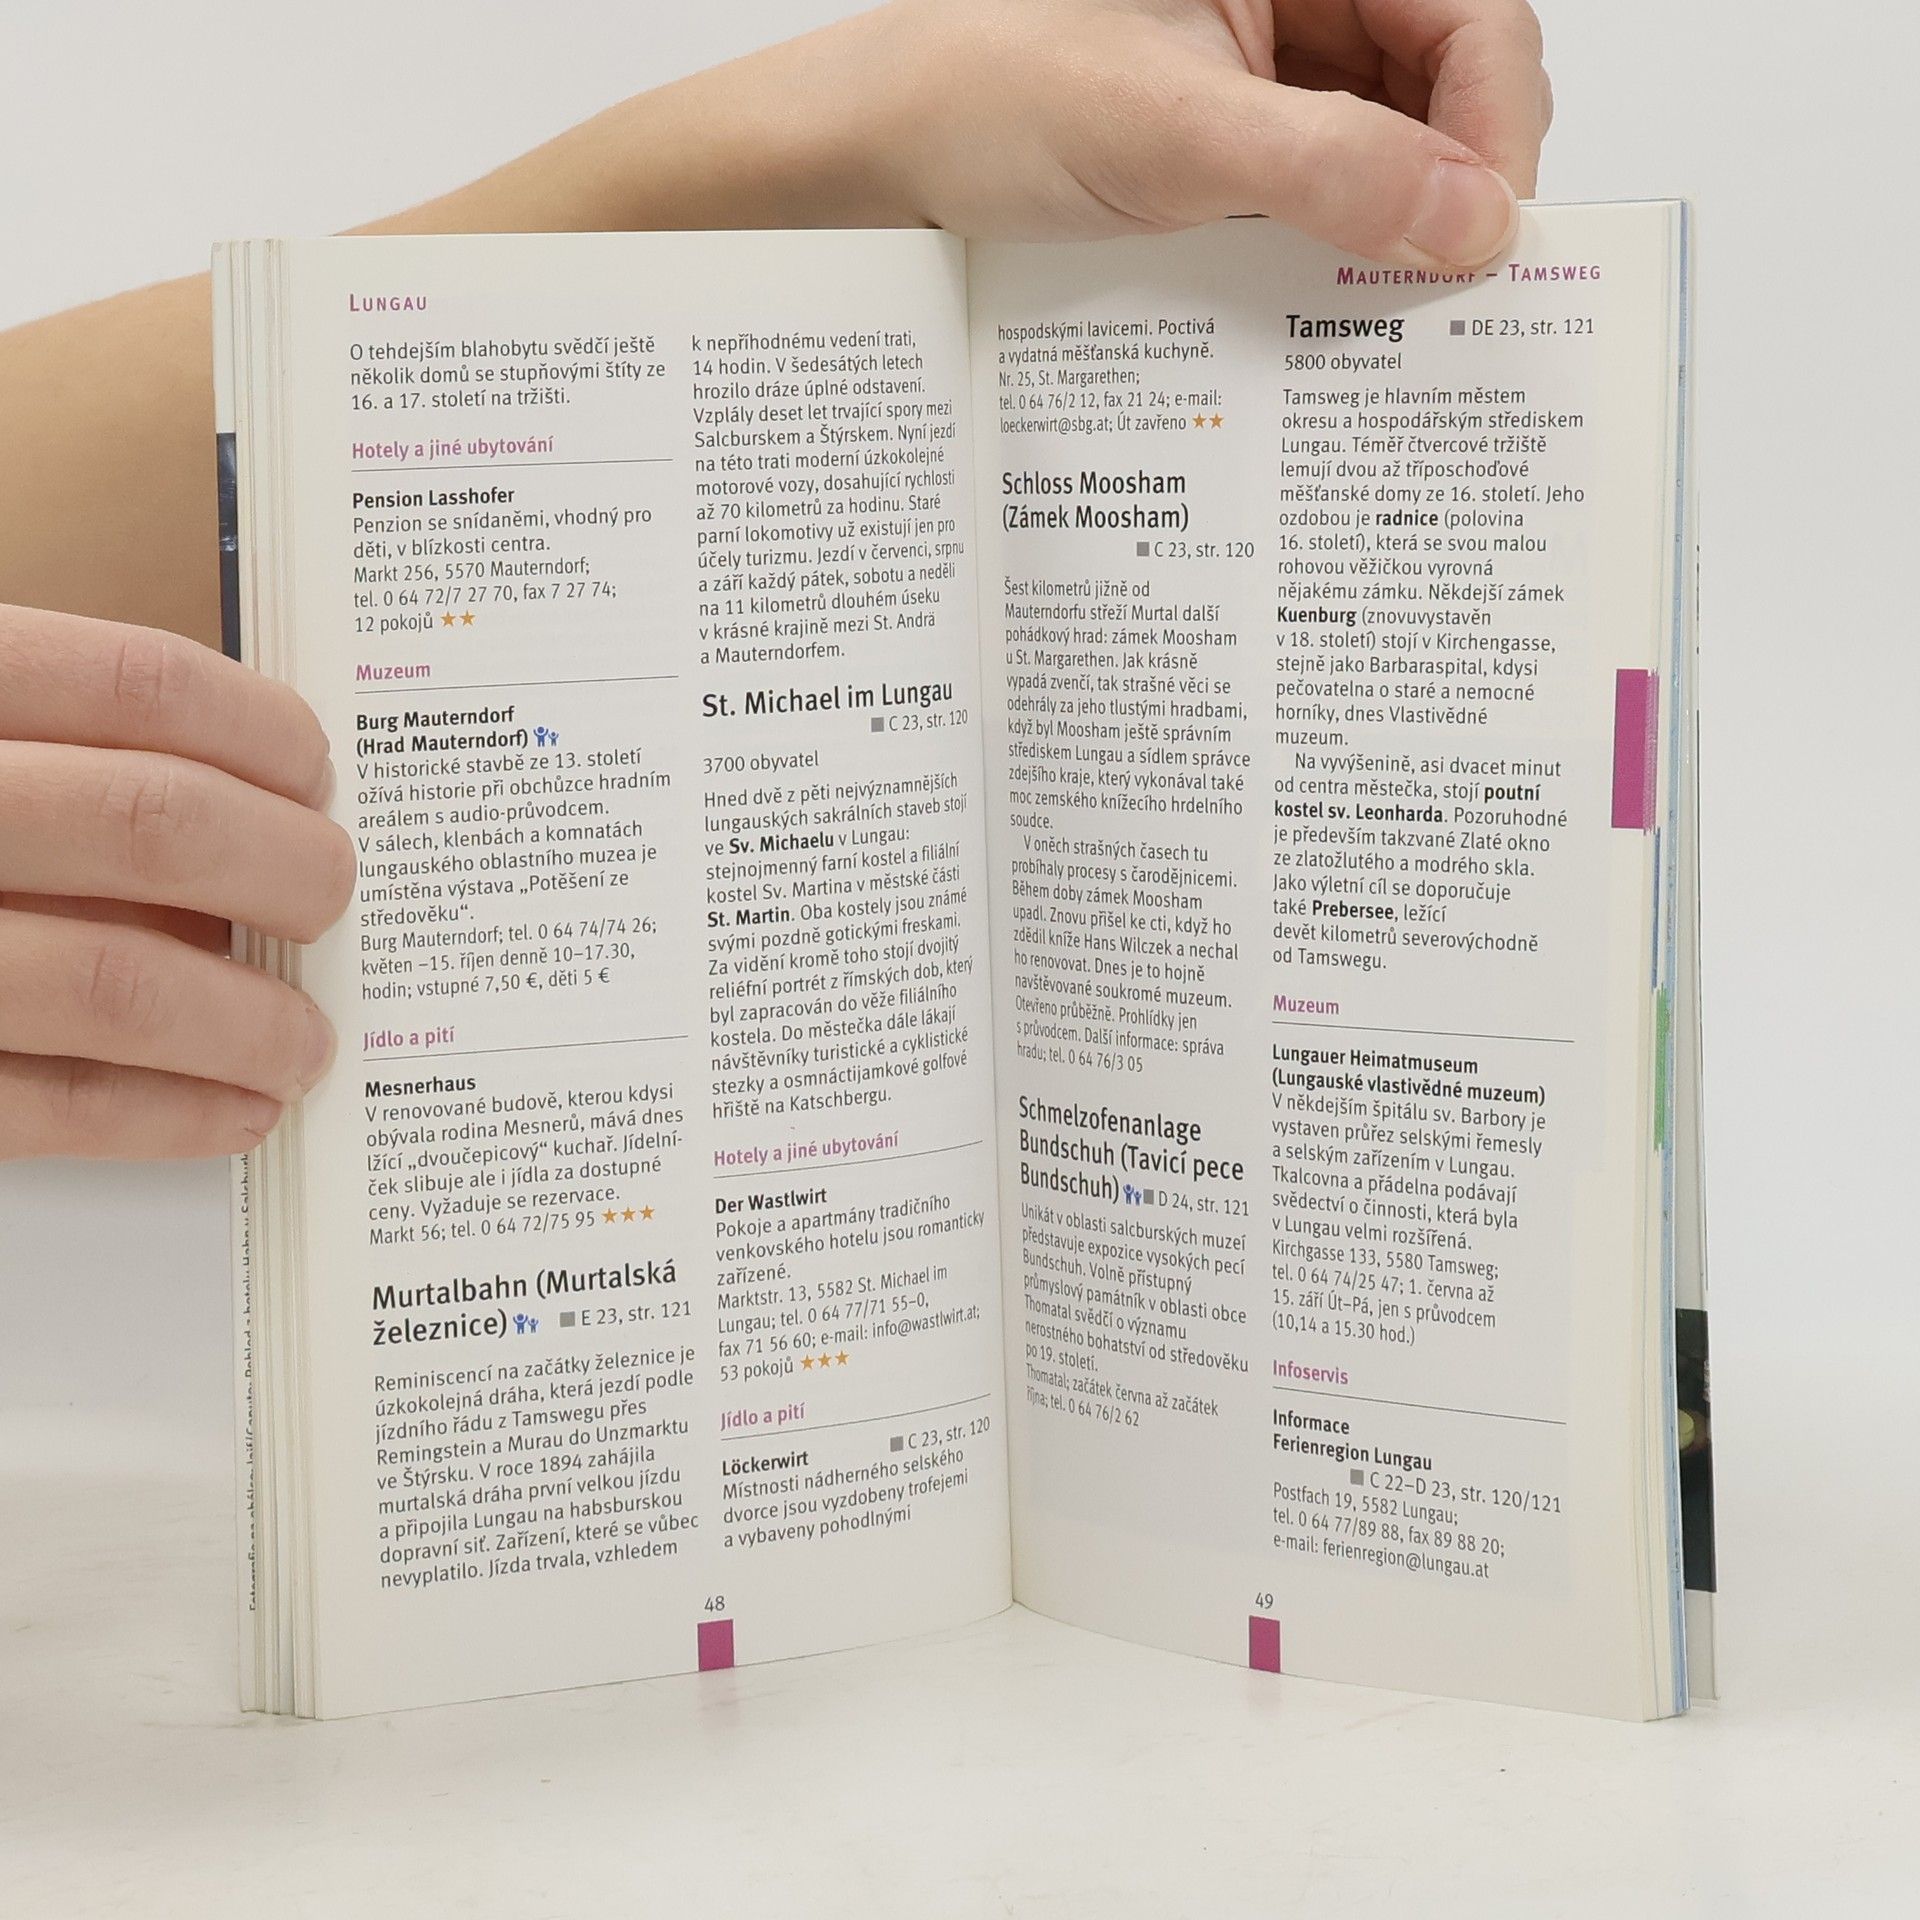 LUNGAU
O tehdejším blahobytu svědčí ještě
několik domů se stupňovými štíty ze
16. a 17. století na tržišti.
Hotely a jiné ubytování
Pension Lasshofer
Penzion se snídaněmi, vhodný pro
děti, v blízkosti centra.
Markt 256, 5570 Mauterndorf;
tel. 0 64 72/7 27 70, fax 7 27 74;
12 pokojů ★★
Muzeum
Burg Mauterndorf
(Hrad Mauterndorf)
V historické stavbě ze 13. století
ožívá historie při obchůzce hradním
areálem s audio-průvodcem.
V sálech, klenbách a komnatách
lungauského oblastního muzea je
umístěna výstava „Potěšení ze
středověku“.
Burg Mauterndorf; tel. 0 64 74/74 26;
květen –15. říjen denně 10–17.30,
hodin; vstupné 7,50 €, děti 5 €
Jídlo a pití
Mesnerhaus
V renovované budově, kterou kdysi
obývala rodina Mesnerů, mává dnes
lžící „dvoučepicový“ kuchař. Jídelní-
ček slibuje ale i jídla za dostupné
ceny. Vyžaduje se rezervace.
Markt 56; tel. 0 64 72/75 95 ★★★
Murtalbahn (Murtalská
železnice) ■ E 23, str. 121
Reminiscencí na začátky železnice je
úzkokolejná dráha, která jezdí podle
jízdního řádu z Tamswegu přes
Remingstein a Murau do Unzmarktu
ve Štýrsku. V roce 1894 zahájila
murtalská dráha první velkou jízdu
a připojila Lungau na habsburskou
dopravní síť. Zařízení, které se vůbec
nevyplatilo. Jízda trvala, vzhledem
k nepříhodnému vedení trati,
14 hodin. V šedesátých letech
hrozilo dráze úplné odstavení.
Vzplály deset let trvající spory mezi
Salcburskem a Štýrskem. Nyní jezdí
na této trati moderní úzkokolejné
motorové vozy, dosahující rychlosti
až 70 kilometrů za hodinu. Staré
parní lokomotivy už existují jen pro
účely turizmu. Jezdí v červenci, srpnu
a září každý pátek, sobotu a neděli
na 11 kilometrů dlouhém úseku
v krásné krajině mezi St. Andrä
a Mauterndorfem.
St. Michael im Lungau
■ C 23, str. 120
3700 obyvatel
Hned dvě z pěti nejvýznamnějších
lungauských sakrálních staveb stojí
ve Sv. Michaelu v Lungau:
stejnojmenný farní kostel a filiální
kostel Sv. Martina v městské části
St. Martin. Oba kostely jsou známé
svými pozdně gotickými freskami.
Za vidění kromě toho stojí dvojitý
reliéfní portrét z římských dob, který
byl zapracován do věže filiálního
kostela. Do městečka dále lákají
návštěvníky turistické a cyklistické
stezky a osmnáctijamkové golfové
hřiště na Katschbergu.
Hotely a jiné ubytování
Der Wastlwirt
Pokoje a apartmány tradičního
venkovského hotelu jsou romanticky
zařízené.
Marktstr. 13, 5582 St. Michael im
Lungau; tel. 0 64 77/71 55–0,
fax 71 56 60; e-mail: info@wastlwirt.at;
53 pokojů ★★★
Jídlo a pití
■ C 23, str. 120
Löckerwirt
Místnosti nádherného selského
dvorce jsou vyzdobeny trofejemi
a vybaveny pohodlnými
48
MAUTERNDORF – TAMSWEG
hospodskými lavicemi. Poctivá
a vydatná měšťanská kuchyně.
Nr. 25, St. Margarethen;
tel. 0 64 76/2 12, fax 21 24; e-mail:
loeckerwirt@sbg.at; Út zavřeno ★★
Schloss Moosham
(Zámek Moosham)
■ C 23, str. 120
Šest kilometrů jižně od
Mauterndorfu střeží Murtal další
pohádkový hrad: zámek Moosham
u St. Margarethen. Jak krásně
vypadá zvenčí, tak strašné věci se
odehrály za jeho tlustými hradbami,
když byl Moosham ještě správním
střediskem Lungau a sídlem správce
zdejšího kraje, který vykonával také
moc zemského knížecího hrdelního
soudce.
V oněch strašných časech tu
probíhaly procesy s čarodějnicemi.
Během doby zámek Moosham
upadl. Znovu přišel ke cti, když ho
zdědil kníže Hans Wilczek a nechal
ho renovovat. Dnes je to hojně
navštěvované soukromé muzeum.
Otevřeno průběžně. Prohlídky jen
s průvodcem. Další informace: správa
hradu; tel. 0 64 76/3 05
Schmelzofenanlage
Bundschuh (Tavicí pece
Bundschuh) ■ D 24, str. 121
Unikát v oblasti salcburských muzeí
představuje expozice vysokých pecí
Bundschuh. Volně přístupný
průmyslový památník v oblasti obce
Thomatal svědčí o významu
nerostného bohatství od středověku
po 19. století.
Thomatal; začátek června až začátek
října; tel. 0 64 76/2 62
Tamsweg ■ DE 23, str. 121
5800 obyvatel
Tamsweg je hlavním městem
okresu a hospodářským střediskem
Lungau. Téměř čtvercové tržiště
lemují dvou až tříposchoďové
měšťanské domy ze 16. století. Jeho
ozdobou je radnice (polovina
16. století), která se svou malou
rohovou věžičkou vyrovná
nějakému zámku. Někdejší zámek
Kuenburg (znovuvystavěn
v 18. století) stojí v Kirchengasse,
stejně jako Barbaraspital, kdysi
pečovatelna o staré a nemocné
horníky, dnes Vlastivědné
muzeum.
Na vyvýšenině, asi dvacet minut
od centra městečka, stojí poutní
kostel sv. Leonharda. Pozoruhodné
je především takzvané Zlaté okno
ze zlatožlutého a modrého skla.
Jako výletní cíl se doporučuje
také Prebersee, ležící
devět kilometrů severovýchodně
od Tamswegu.
Muzeum
Lungauer Heimatmuseum
(Lungauské vlastivědné muzeum)
V někdejším špitálu sv. Barbory je
vystaven průřez selskými řemesly
a selským zařízením v Lungau.
Tkalcovna a přádelna podávají
svědectví o činnosti, která byla
v Lungau velmi rozšířená.
Kirchgasse 133, 5580 Tamsweg;
tel. 0 64 74/25 47; 1. června až
15. září Út–Pá, jen s průvodcem
(10,14 a 15.30 hod.)
Infoservis
Informace
Ferienregion Lungau
■ C 22–D 23, str. 120/121
Postfach 19, 5582 Lungau;
tel. 0 64 77/89 88, fax 89 88 20;
e-mail: ferienregion@lungau.at
49